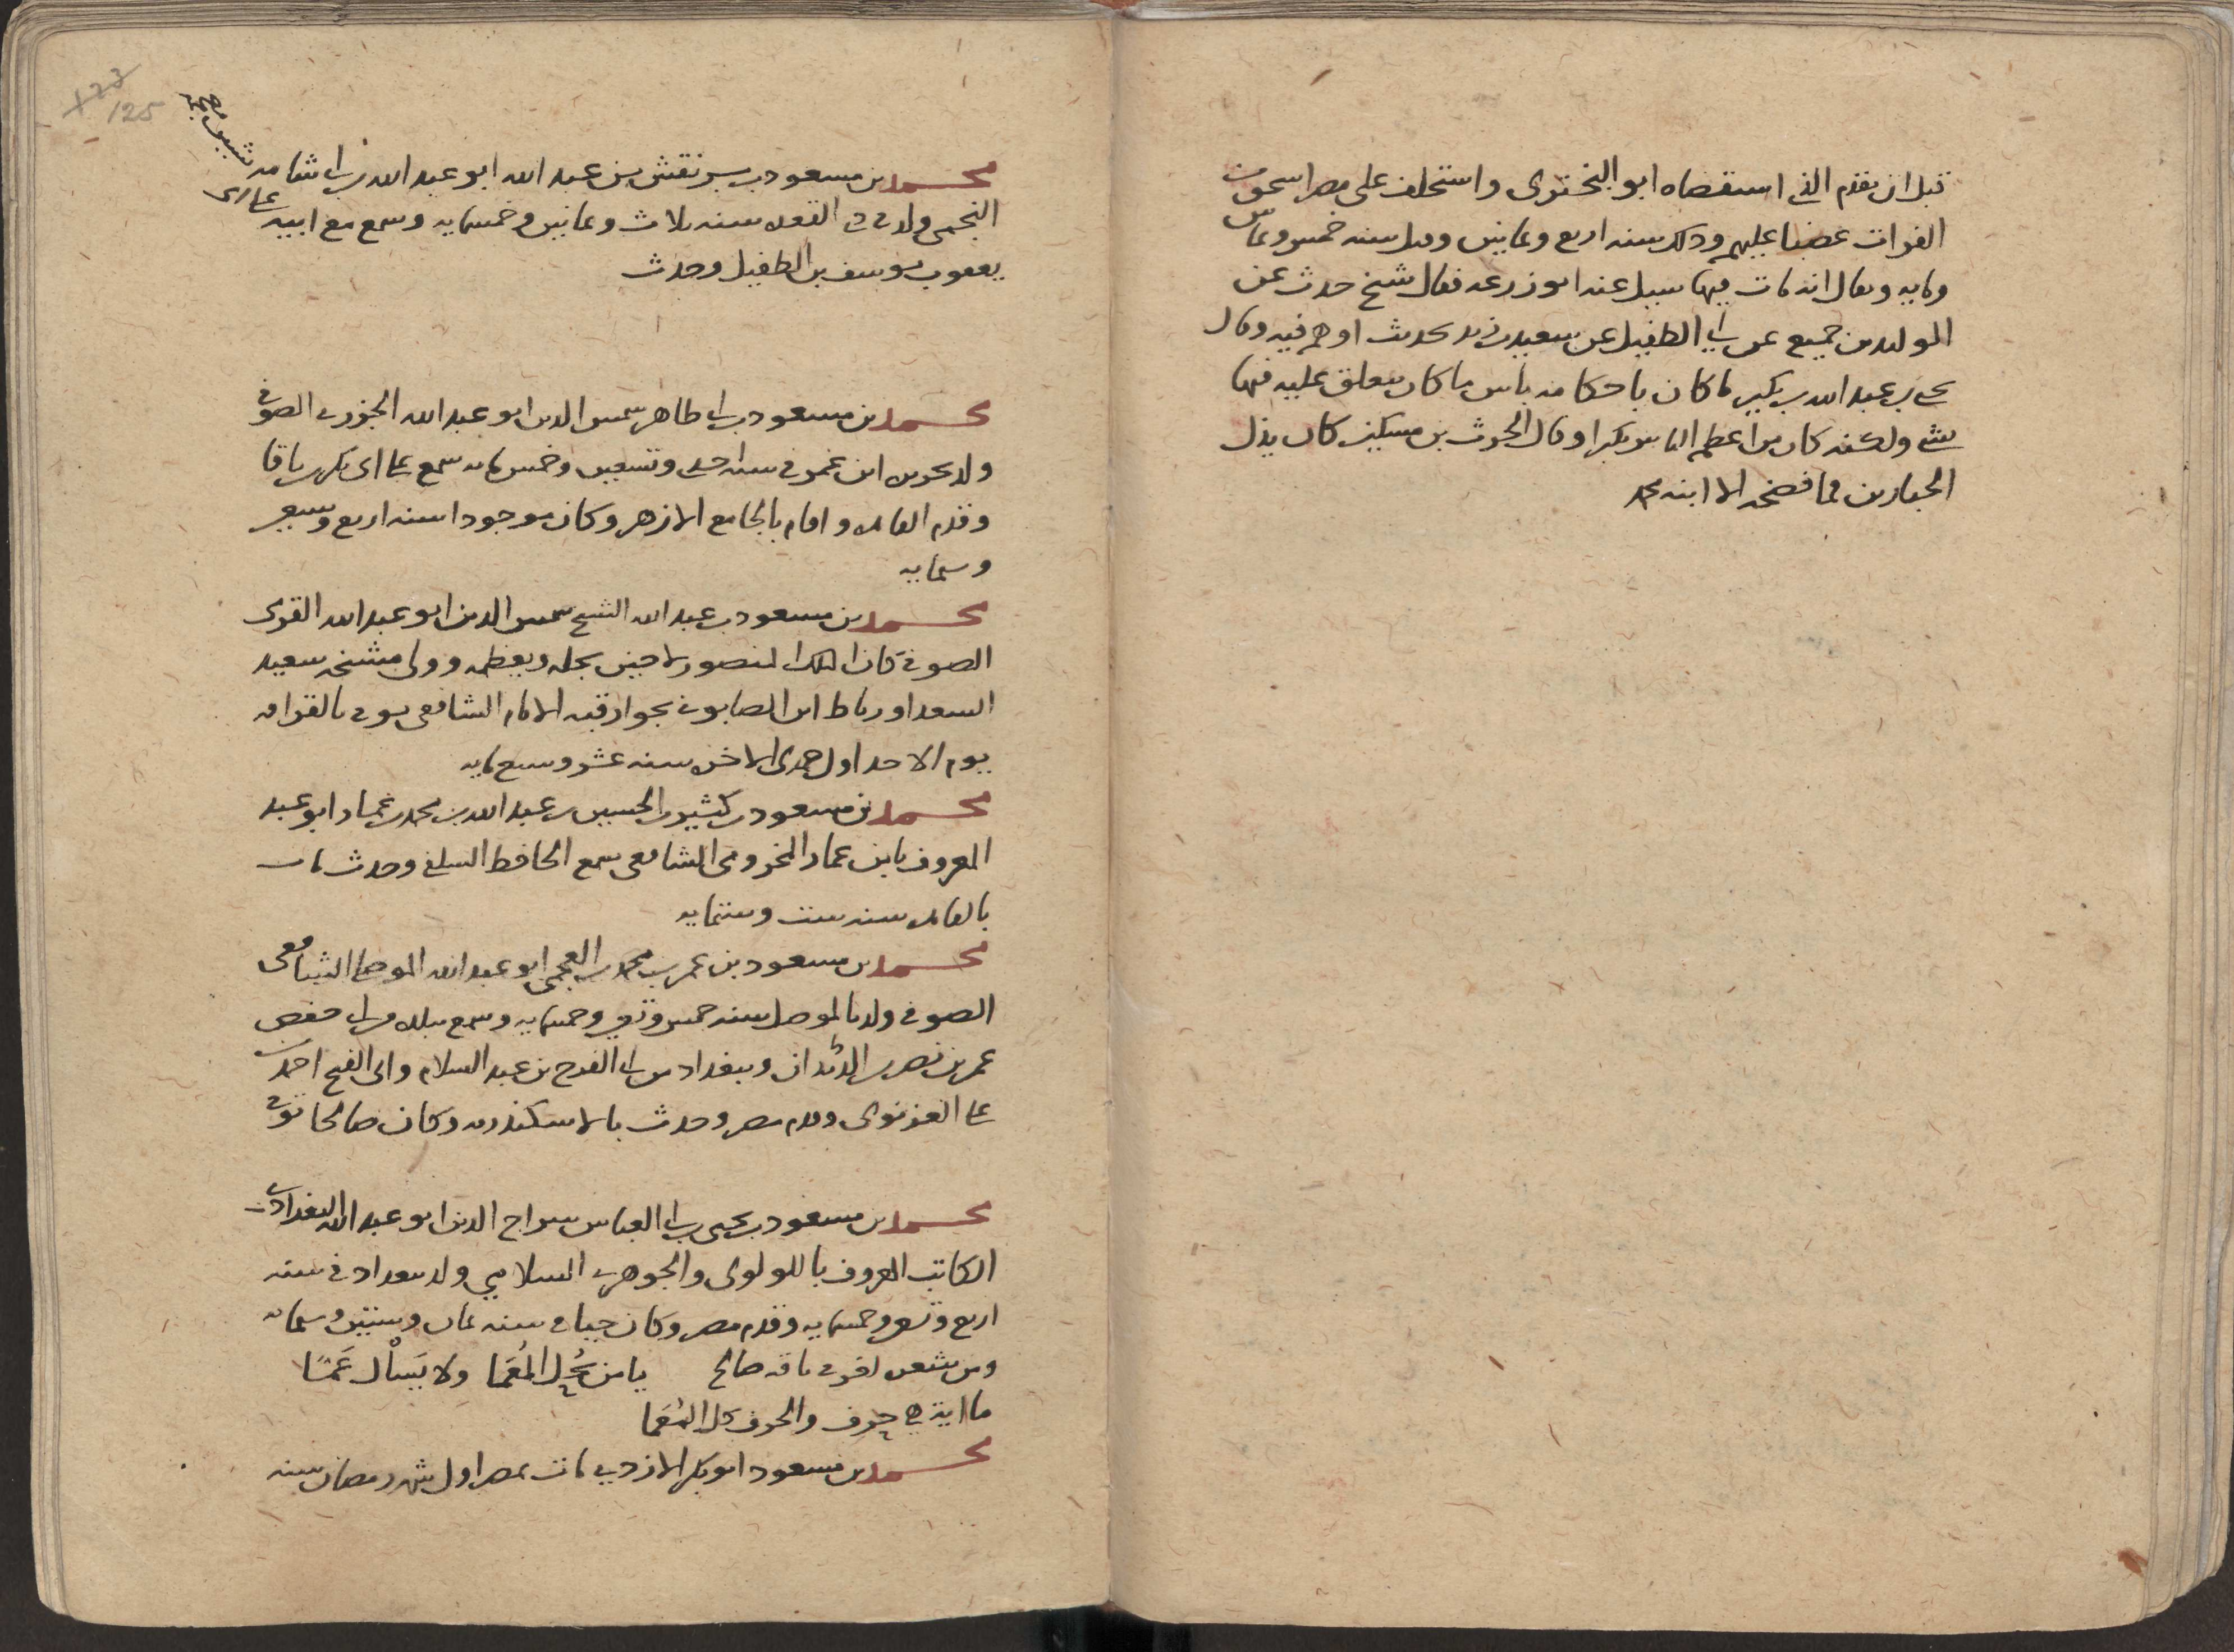 قبل ان يقدم الذي استقضاه ابو البختري واستخلف على مصر اسحق بن
الفرات غضبا عليهم وذلك سنه اربع وثمانين وقيل سنه خمس وثمانين
ومايه ويقال انه مات فيها سيل عنه ابو زرعه فقال شيخ حدث عن
الوليد بن جميع عن ابي الطفيل عن سعيد بن زيد بحديث اوهم فيه وقال
يحيى بن عبد الله بن بكير ما كان باحكامه باس ما كان يتعلق عليه فيها
بشي ولكنه كان من اعظم الناس تكبرا وقال الحرث بن مسكين كان يذل
الجبارين فما فضحه الا ابنه محمد
123
125
محمد بن مسعود بن سبرنقش بن عبد الله ابو عبد الله بن ابي شامه
النجمي ولد في ذي القعده سنه ثلاث وثمانين وخمسمايه وسمع مع ابيه على ابي
يعقوب يوسف بن الطفيل وحدث
محمد بن مسعود بن ابي طاهر شمس الدين ابو عبد الله الجزري الصوفي
ولد بجزيره ابن عمر في سنه احدى وتسعين وخمس مايه سمع على ابي بكر بن باقا
وقدم القاهره واقام بالجامع الازهر وكان موجودا سنه اربع وسبعين
وستمايه
محمد بن مسعود بن عبد الله الشيخ شمس الدين ابو عبد الله القوي
الصوفي كان الملك المنصور لاجين يجله ويعظمه وولى مشيخه سعيد
السعدا ورباط ابن الصابوني بجوار قبه الامام الشافعي توفي بالقرافه
يوم الاحد اول جمدى الاخره سنه عشر وسبع مايه
محمد بن مسعود بن كثير بن الحسين بن عبد الله بن محمد بن عماد ابو عبد
المعروف بابن عماد المخزومي الشافعي سمع الحافظ السلفي وحدث مات
بالقاهره سنه ست وستمايه
محمد بن مسعود بن عمر بن محمد بن العجمي ابو عبد الله الموصلي الشافعي
الصوفي ولد بالموصل سنه خمس وتسعين وخمسمايه وسمع ببلده من ابي حفص
عمر بن نصر بن وببغداد من ابي الفرج بن عبد السلام وابي الفتح احمد بن
على الغزنوي وقدم مصر وحدث بالاسكندريه وكان صالحا توفي
محمد بن مسعود بن يحيى بن ابي العباس سراج الدين ابو عبد الله البغدادي
الكاتب المعروف باللولوي والجوهري السلامي ولد ببغداد في سنه
اربع وتسعين وخمسمايه وقدم مصر وكان حيا في سنه ثمان وستين وستمايه
ومن شعره لغز في ناقه صالح يا من يَحُل المُعَما ولا يَسْأل عَمّا
ما اية هي حرف والحرف حل المُعَما
محمد بن مسعود ابو بكر الازدي مات بمصر اول شهر رمضان سنه